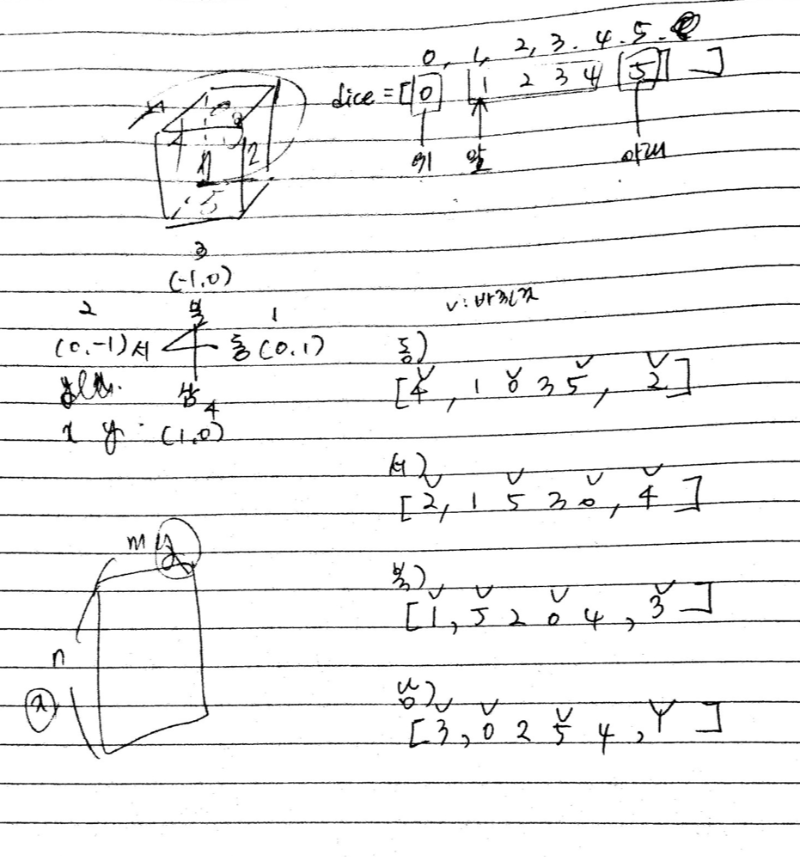 0, 1, 2, 3. 4. 5.
dice = [0 1 2 3 4 5 ]
위 앞 아래
4 1 2 5
3
(-1,0)
북
2 1
(0,-1) 서 동 (0,1)
남 4
x y (1,0)
v: 바뀐것
동)
[4, 1 0 3 5, 2]
서)
[2, 1 5 3 0, 4]
북)
[1, 5 2 0 4, 3]
남)
[3, 0 2 5 4, 1]
m y
n
x